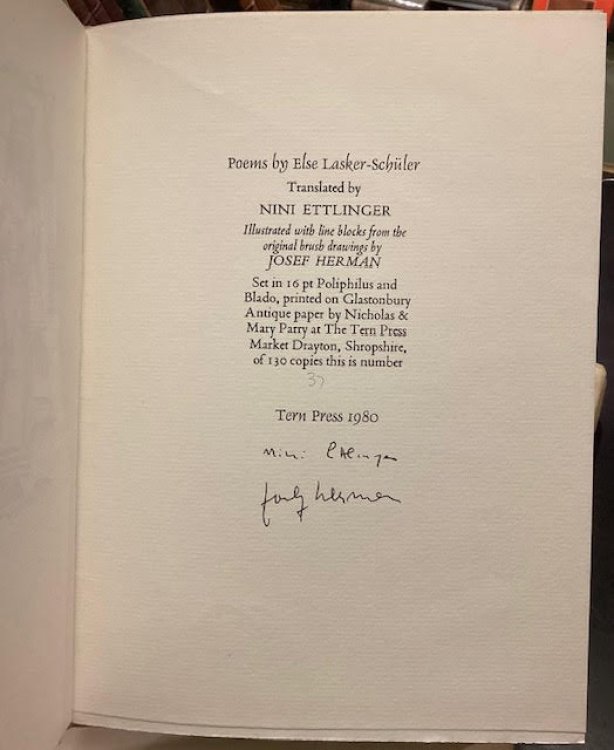 Poems by Else Lasker-Schüler
Translated by
NINI ETTLINGER
Illustrated with line blocks from the
original brush drawings by
JOSEF HERMAN
Set in 16 pt Poliphilus and
Blado, printed on Glastonbury
Antique paper by Nicholas &
Mary Parry at The Tern Press
Market Drayton, Shropshire,
of 130 copies this is number
37
Tern Press 1980
Nini Ettlinger
Josef Herman